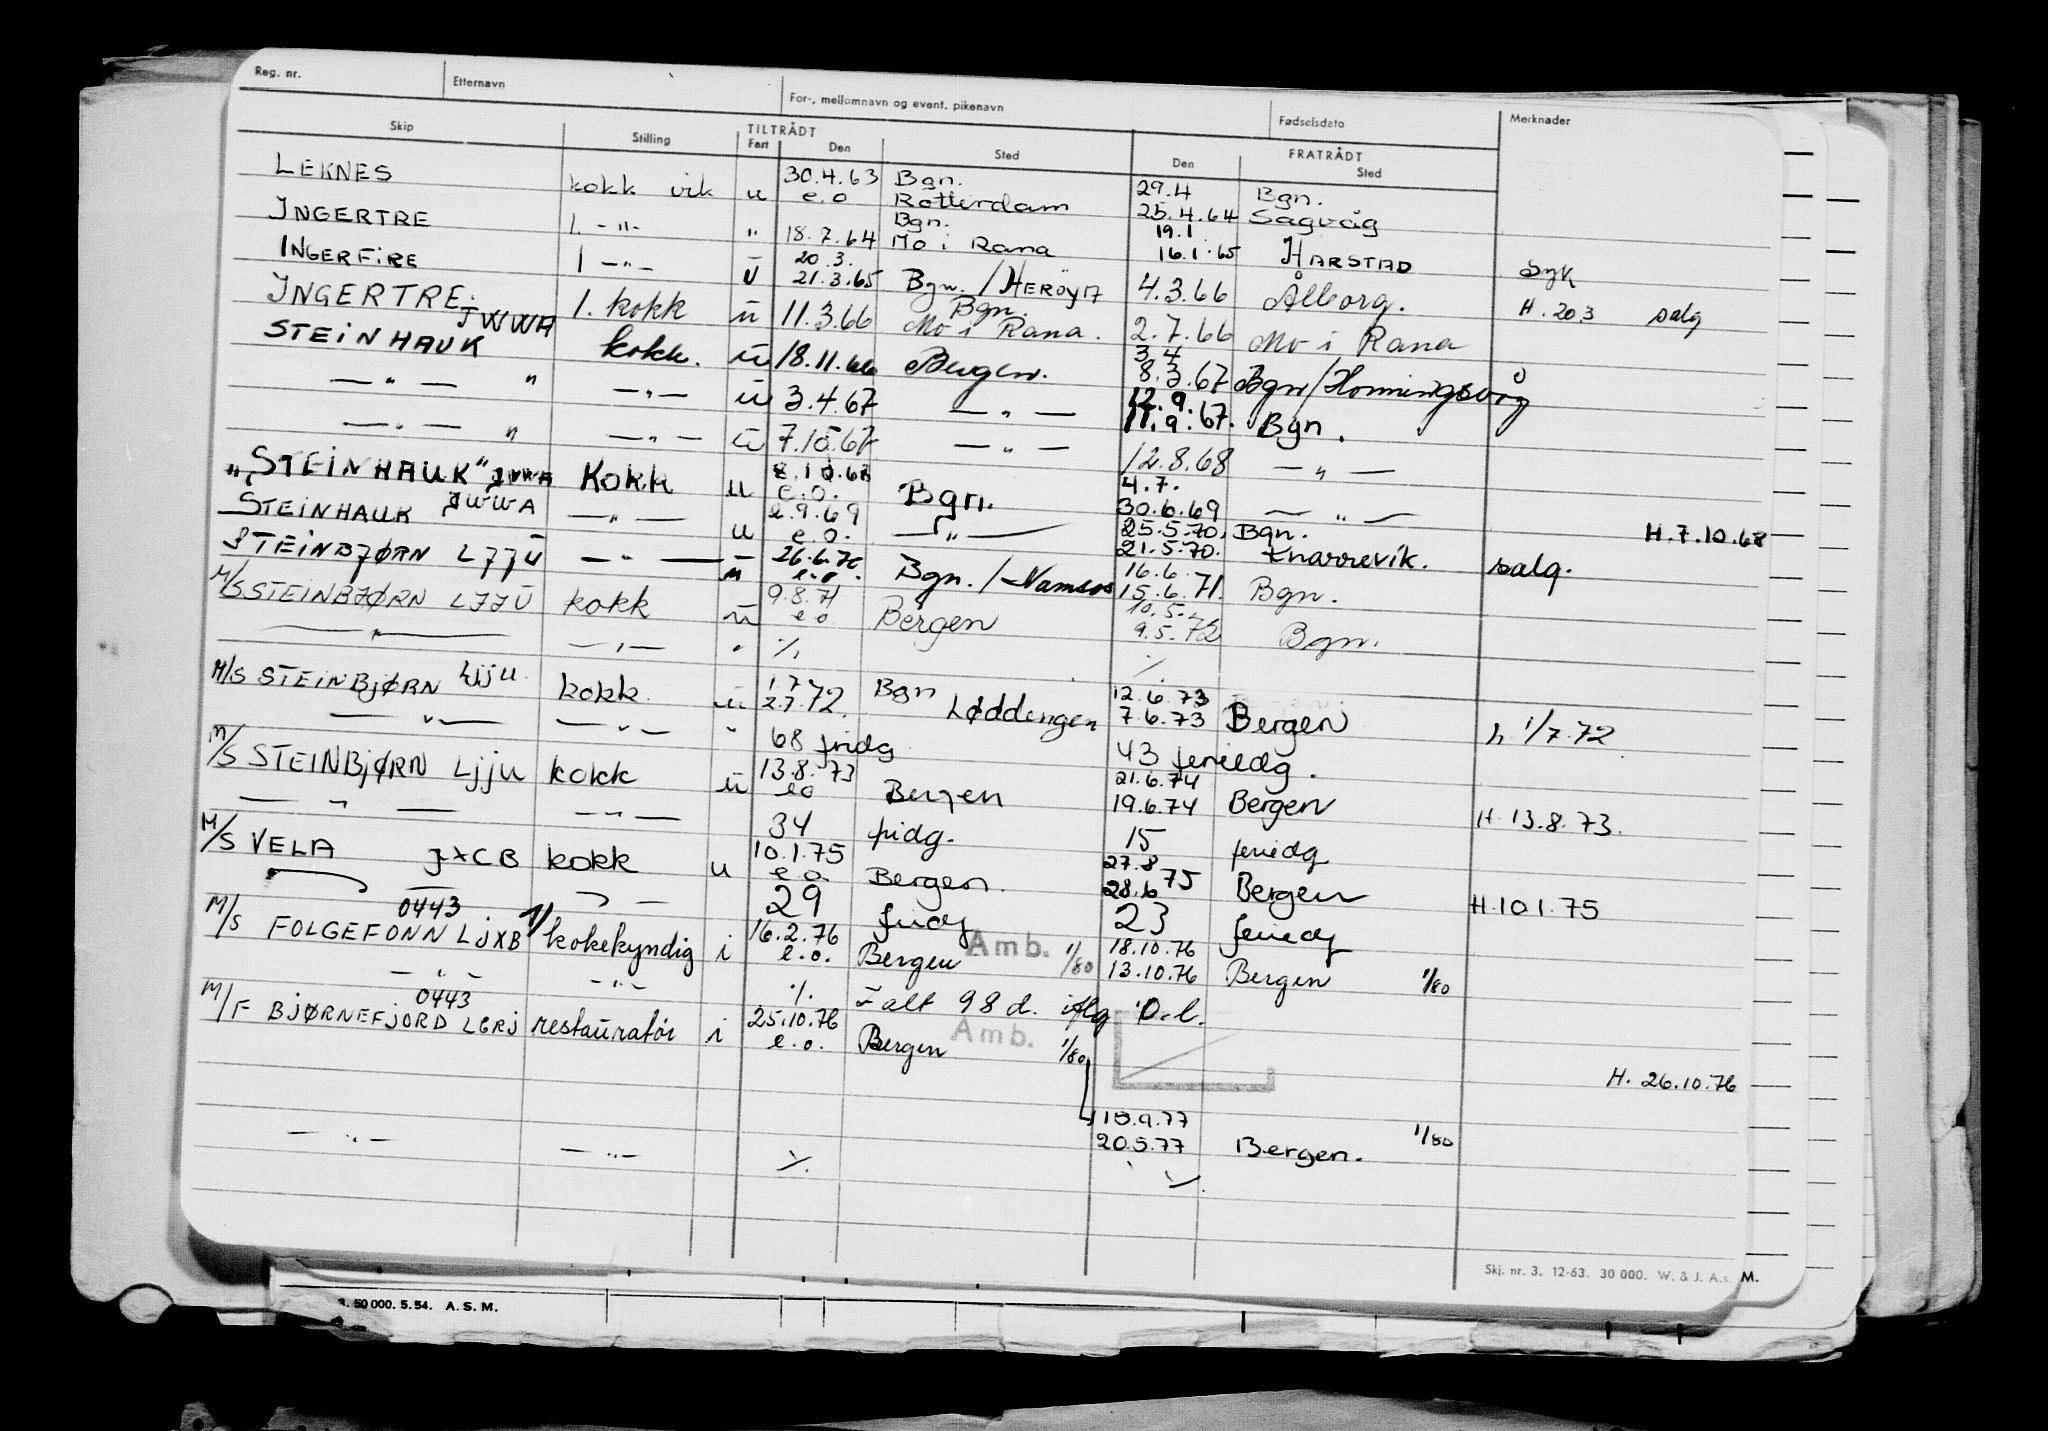 Reg. nr. Etternavn For-, mellomnavn og event. pikenavn Fødselsdato Merknader
Skip Stilling TILTRÅDT Fart Den Sted FRATRÅDT Den Sted
LEKNES kokk vik u 30.4.63 e.o Bgn. Rotterdam 29.4 25.4.64 Bgn. Sagvåg
INGERTRE 1. -"- " 18.7.64 Bgn. Mo i Rana 19.1 16.1.65 HARSTAD syk
INGERFIRE 1 -"- U 20.3. 21.3.65 Bgn. / HERÖYA 4.3.66 Ålborg. H. 20.3 salg
INGERTRE JWWA 1. kokk u 11.3.66 Bgn. Mo i Rana. 2.7.66 Mo i Rana
STEINHAUK kokk. u 18.11.66 Bergen. 3.4 8.3.67 Bgn/Honningsvåg
— " — " — " — u 3.4.67 — " — 12.9. 11.9.67. Bgn.
— " — " — " — u 7.10.67 — " — 12.8.68 — " —
"STEINHAUK" JWWA Kokk u e.o. Bgn. 4.7. 30.6.69 — " — H.7.10.68
STEINHAUK JWWA — " — u 2.9.69 e.o. — " — 25.5.70, 21.5.70. Bgn. Knarrevik. salg.
STEINBJØRN LJJU — " — 26.6.70 e.o. Bgn. / Namsos 16.6. 15.6.71. Bgn.
M/S STEINBJØRN LJJU kokk u 9.8.71 eo Bergen 10.5. 9.5.72 Bgn.
— " — — " — " %
M/S STEINBJØRN Ljju kokk. u 1.7 2.7.72. Bgn Løddingen 12.6.73 7.6.73 Bergen h. 1/7.72
— " — — " — " 68 fridg 43 feriedg.
M/S STEINBJØRN Ljju kokk u 13.8.73 eo Bergen 21.6.74 19.6.74 Bergen H. 13.8.73.
— " — — " — 34 fridg. 15 feriedg
M/S VELA JXCB kokk u 10.1.75 eo Bergen. 27.8 28.6 75 Bergen H.10.1.75
29 fridg 23 feriedg
M/S FOLGEFONN 0443 LJXB 1/ kokekyndig i 16.2.76 e.o. Bergen Amb. 1/80 18.10.76 13.10.76 Bergen 1/80
— " — — " — % I alt 98 d. O.l.
M/F BJØRNEFJORD 0443 LGRJ restauratør i 25.10.76 e.o. Bergen Amb. 1/80 H. 26.10.76
15.9.77 20.5.77 Bergen. 1/80
— " — — " — % %
Skj. nr. 3. 12-63. 30 000. W. & J. A.s. M.
50 000. 5.54. A. S. M.